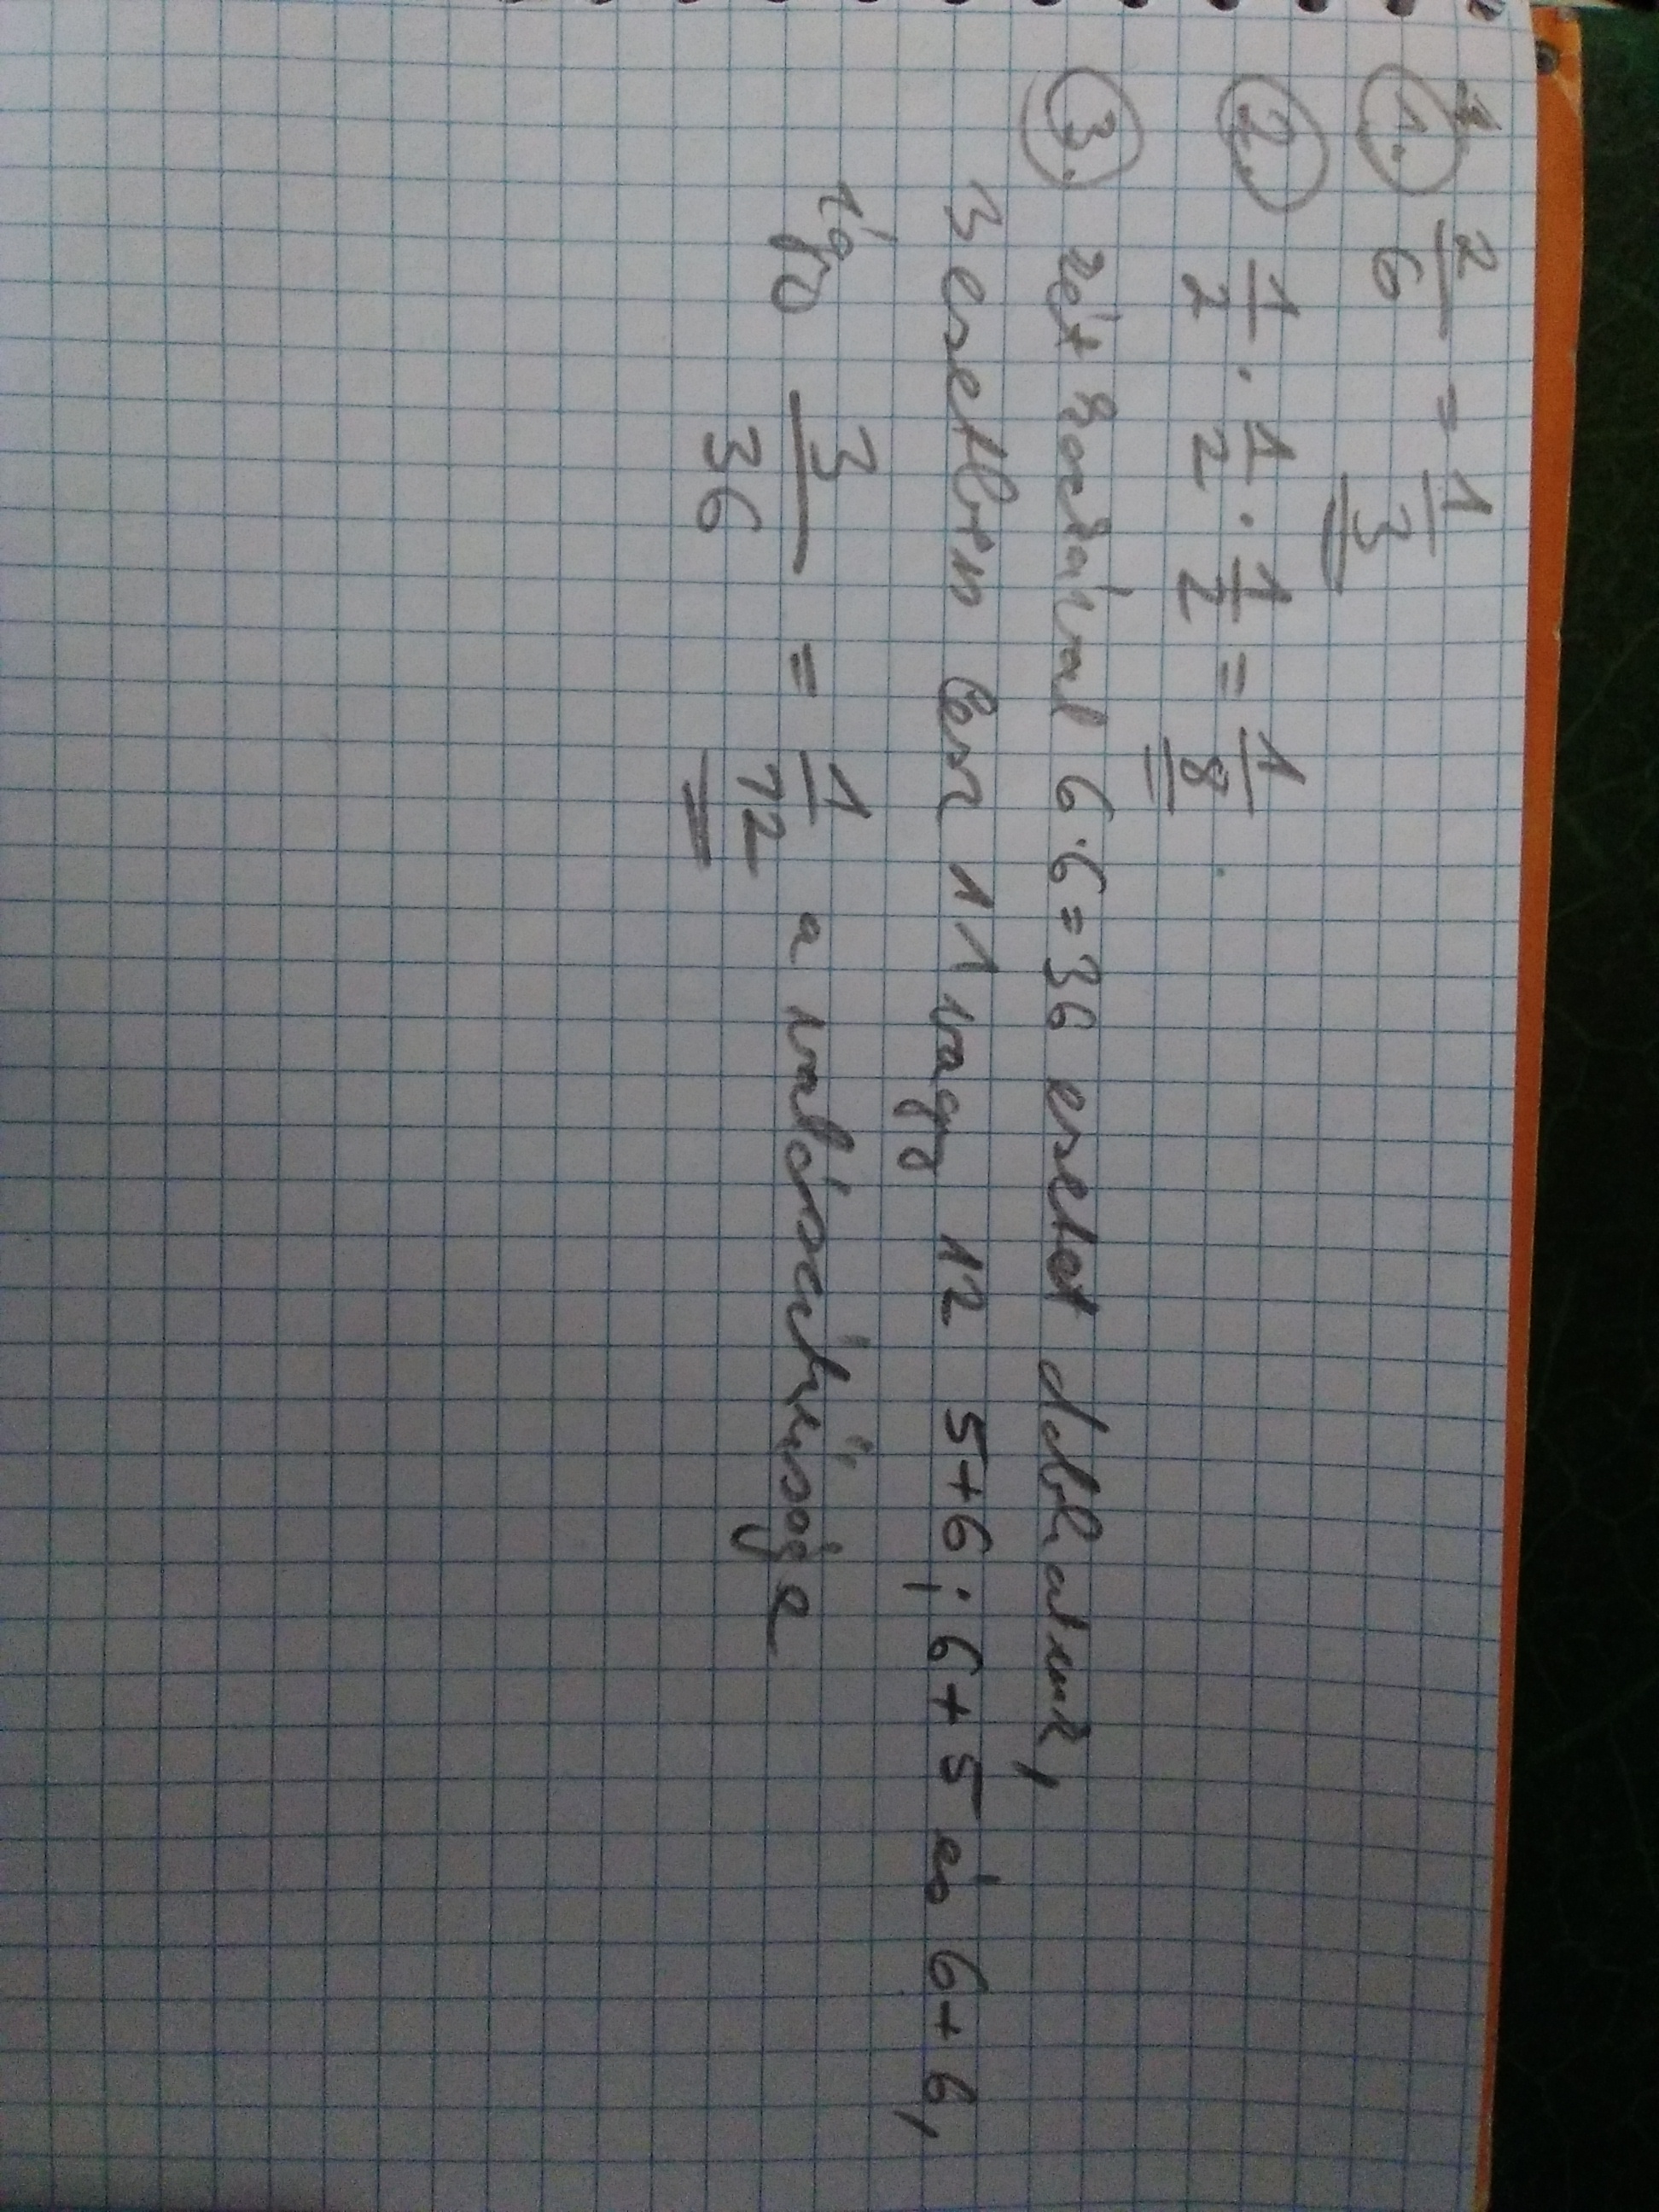 1. 2/6 = 1/3
2. 1/2 · 1/2 · 1/2 = 1/8
3. két kockával 6·6=36 esetet dobhatunk,
3 esetben lesz 11 vagy 12 5+6; 6+5 és 6+6,
így 3/36 = 1/12 a valószínűsége